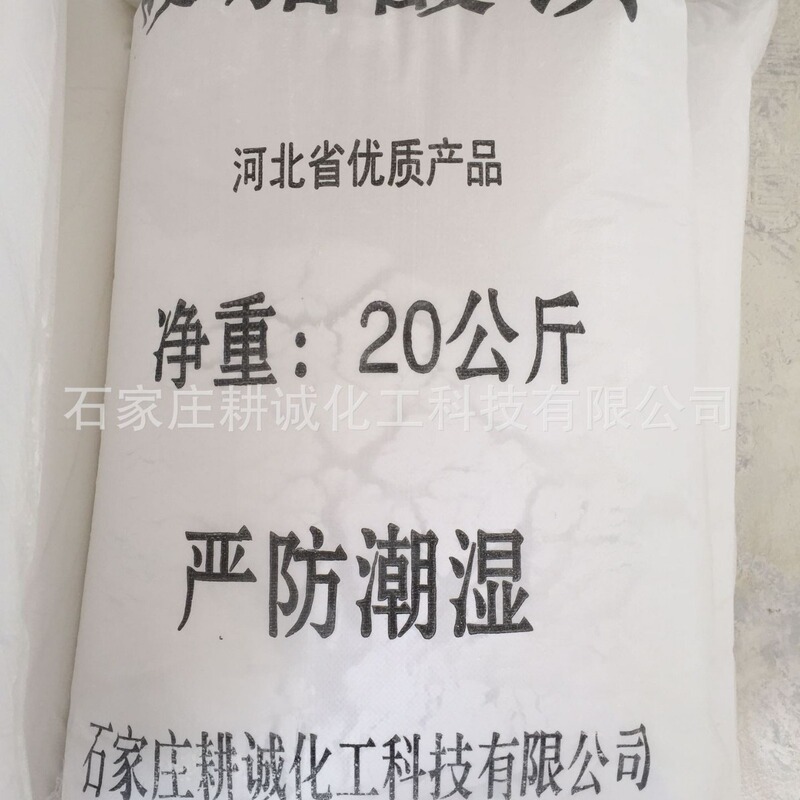 河北省优质产品
净重：20公斤
石家庄耕诚化工科技有限公司
严防潮湿
石家庄耕诚化工科技有限公司